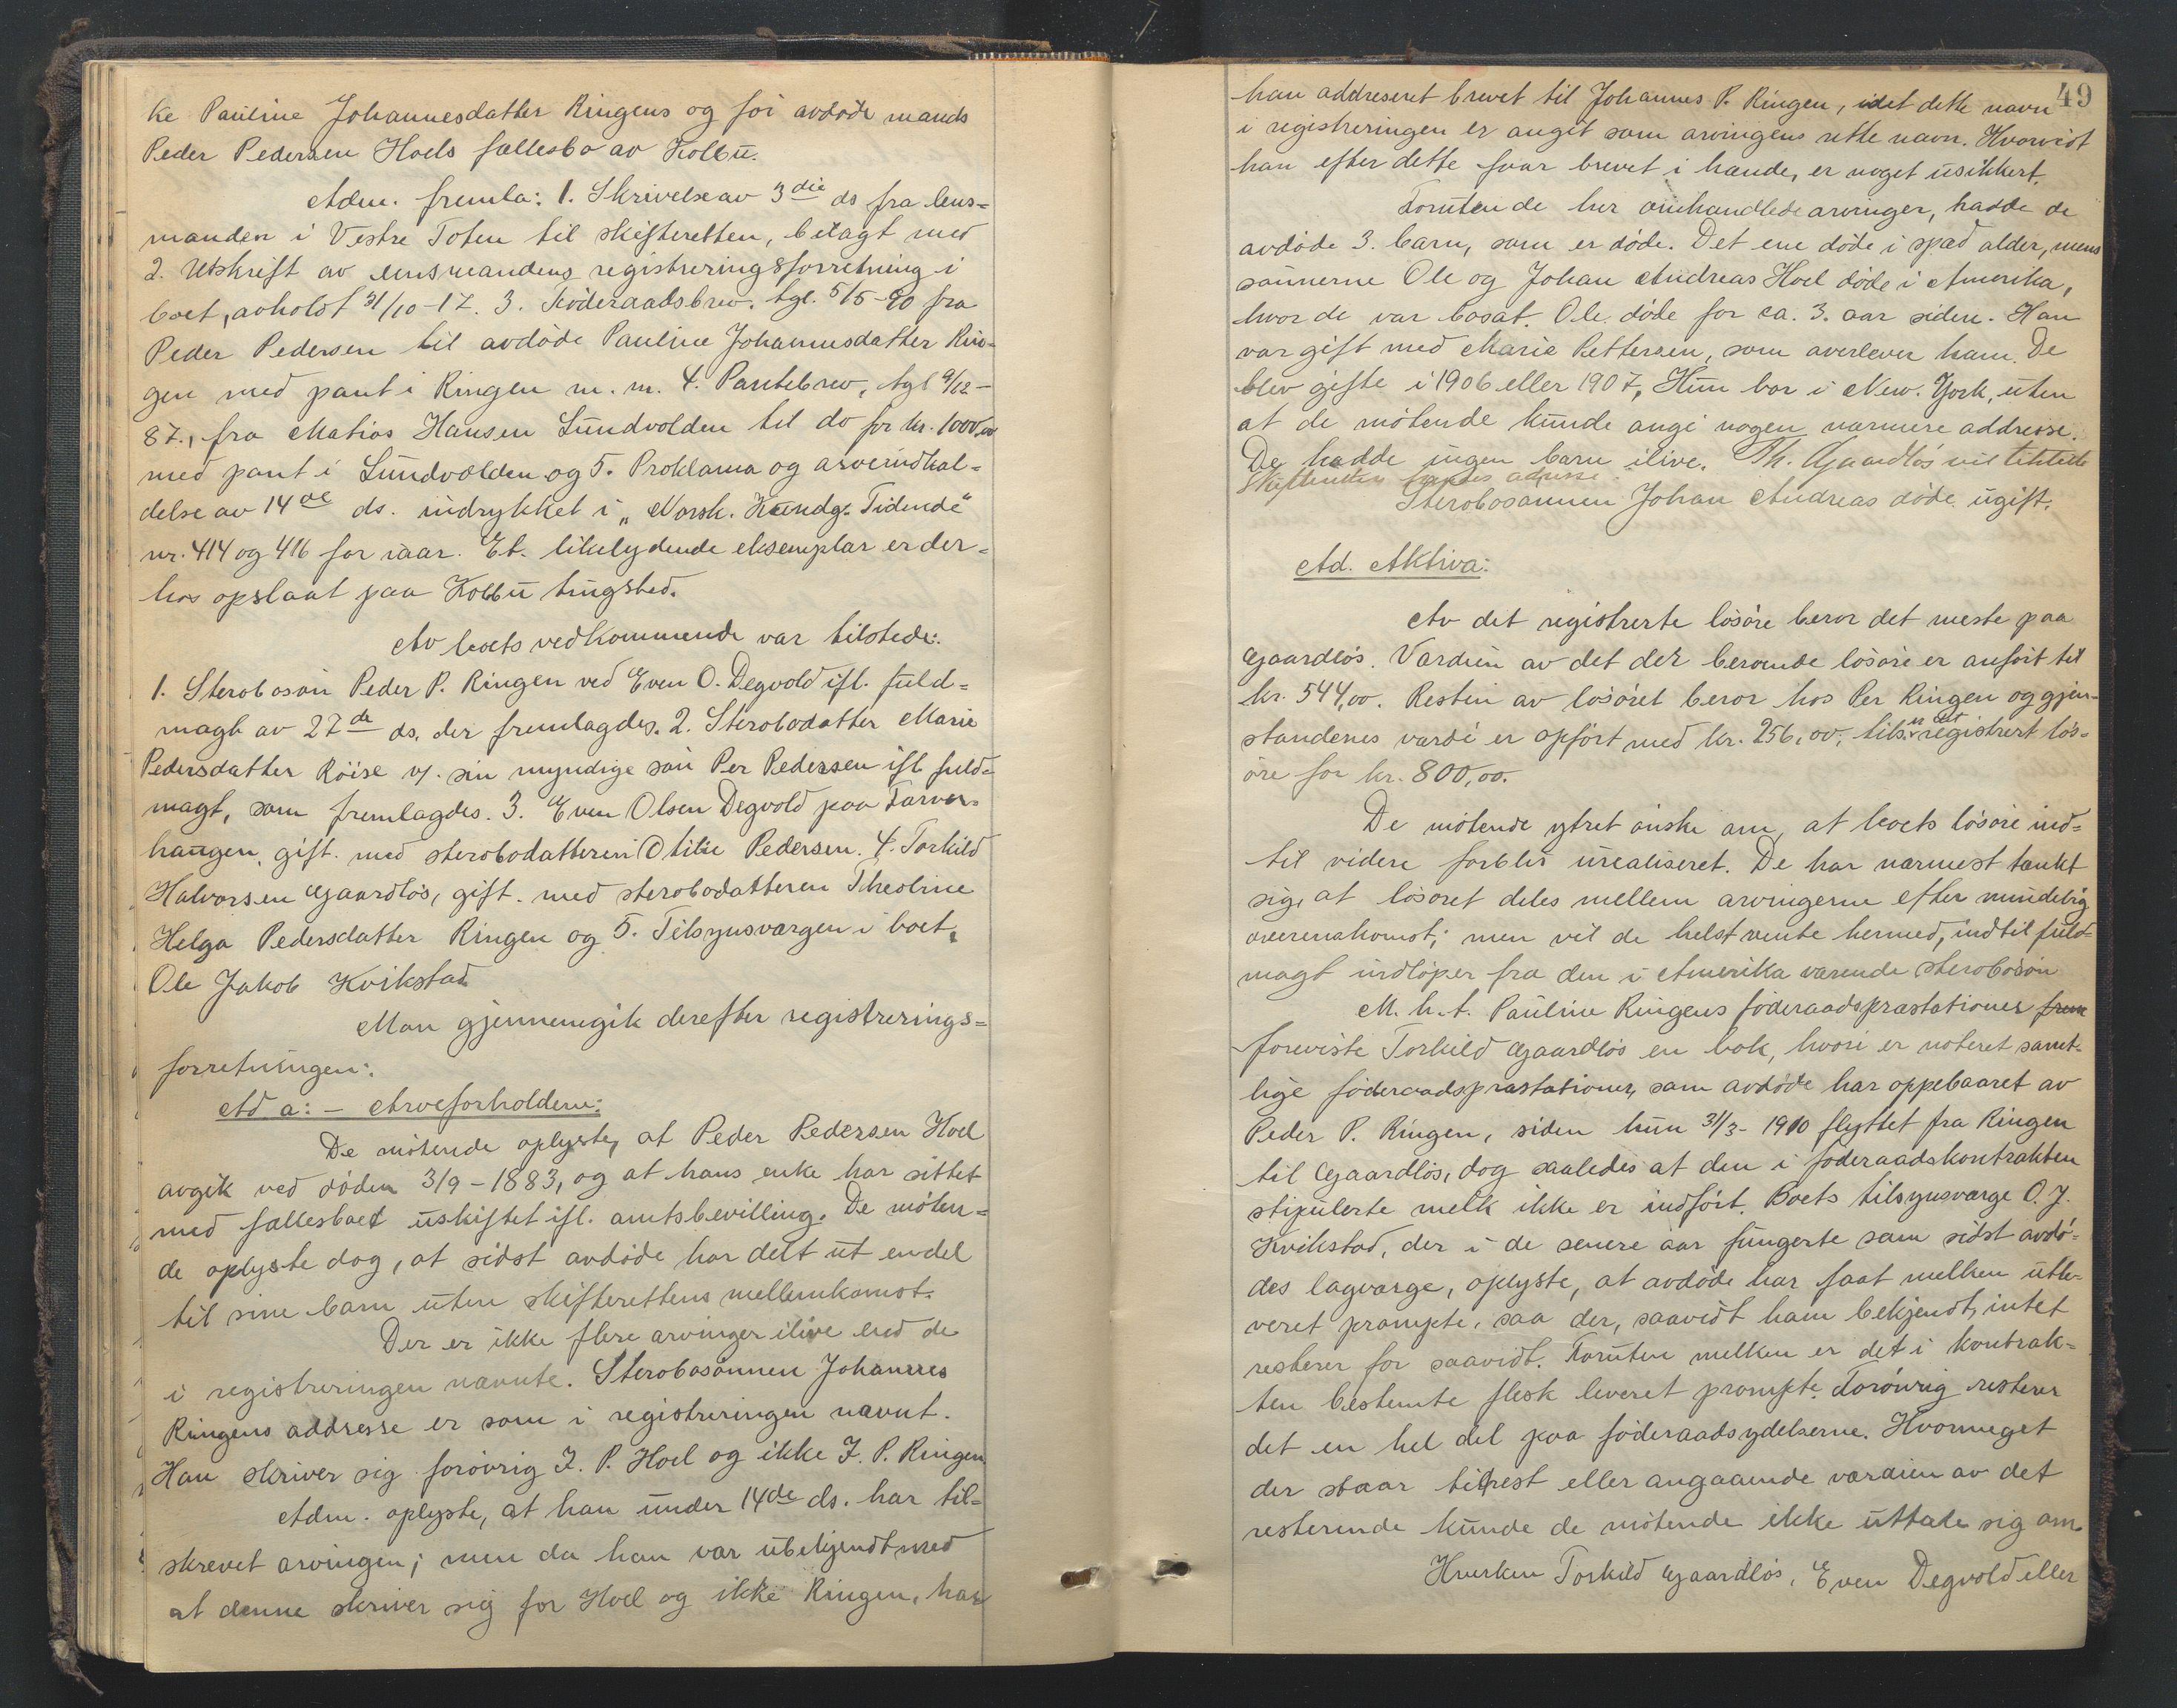 ke Pauline Johannesdatter Ringens og før avdøde mands
Peder Pedersen Hoels fællesbo av Kolbu.
Adm. fremla: 1. Skrivelse av 3die ds fra lens-
manden i Vestre Toten til skifteretten, bilagt med
2. Utskrift av lensmandens registreringsforretning i
boet, avholdt 31/10-17. 3. Føderaadsbrev, tgl. 5/5-90 fra
Peder Pedersen til avdøde Pauline Johannesdatter Rin-
gen med pant i Ringen m. m. 4. Pantebrev, tgl 9/12-
87., fra Matias Hansen Lundvolden til do for kr. 1000,00
med pant i Lundvolden og 5. Proklama og arveindkal-
delse av 14de ds. indrykket i „Norsk. Kundg. Tidende"
nr. 414 og 416 for iaar. Et likelydende eksemplar er der-
hos opslaat paa Kolbu tingsted.
Av boets vedkommende var tilstede:
1. Stervbosøn Peder P. Ringen ved Even O. Degvold ifl. fuld-
magt av 27de ds. der fremlagdes. 2. Stervbodatter Marie
Pedersdatter Røise v/. sin myndige søn Per Pedersen ifl. fuld-
magt, som fremlagdes. 3. Even Olsen Degvold paa Tarver-
haugen, gift med stervbodatteren Otilie Pedersen. 4. Torkild
Halvorsen Gaardløs, gift med stervbodatteren Theoline
Helga Pedersdatter Ringen og 5. Tilsynsværgen i boet,
Ole Jakob Kvikstad.
Man gjennemgik derefter registrerings-
forretningen:
Ad a: - Arveforholdene:
De møtende oplyste, at Peder Pedersen Hoel
avgik ved døden 3/9-1883, og at hans enke har sittet
med fællesboet uskiftet ifl. amtsbevilling. De møten-
de oplyste dog, at sidst avdøde har delt ut endel
til sine barn uten skifterettens mellemkomst.
Der er ikke flere arvinger ilive end de
i registreringen nævnte. Stervbosønnen Johannes
Ringens addresse er som i registreringen nævnt.
Han skriver sig forøvrig J. P. Hoel og ikke J. P. Ringen
Adm. oplyste, at han under 14de ds. har til-
skrevet arvingen; men da han var ubekjendt med
at denne skriver sig for Hoel og ikke Ringen, har
49
han addreseret brevet til Johannes P. Ringen, idet dette navn
i registreringen er angit som arvingens rette navn. Hvorvidt
han efter dette faar brevet i hænde, er noget usikkert.
Foruten de her omhandlede arvinger, hadde de
avdøde 3. barn, som er døde. Det ene døde i spæd alder, mens
sønnerne Ole og Johan Andreas Hoel døde i Amerika,
hvor de var bosat. Ole døde for ca. 3. aar siden. Han
var gift med Marie Pettersen, som overlever ham. De
blev gifte i 1906 eller 1907, Hun bor i New. York, uten
at de møtende kunde angi nogen nærmere addresse.
De hadde ingen barn ilive. Th. Gaardløs vil tilstille
Skifteretten hendes adresse.
Stervbosønnen Johan Andreas døde ugift.
Ad. Aktiva:
Av det registrerte løsøre beror det meste paa
Gaardløs. Værdien av det der beroende løsøre er anført til
kr. 544,00. Resten av løsøret beror hos Per Ringen og gjen-
standenes værdi er opført med kr. 256,00, tils. er det registrert løs-
øre for kr. 800,00.
De møtende ytret ønske om, at boets løsøre ind-
til videre forblir urealiseret. De har nærmest tænkt
sig, at løsøret deles mellem arvingerne efter mindelig
overenskomst; men vil de helst vente hermed, indtil fuld-
magt indløper fra den i Amerika værende stervbosøn
M. h. t. Pauline Ringens føderaadspræstationer frem
foreviste Torkild Gaardløs en bok, hvori er noteret samt-
lige føderaadspræstationer, som avdøde har oppebaaret av
Peder P. Ringen, siden hun 31/3-1910 flyttet fra Ringen
til Gaardløs, dog saaledes at den i føderaadskontrakten
stipulerte melk ikke er indført. Boets tilsynsværge O. J.
Kvikstad, der i de senere aar fungerte som sidst avdø-
des lagværge, oplyste, at avdøde har faat melken utle-
veret prompte, saa der, saavidt ham bekjendt, intet
resterer for saavidt. Foruten melken er det i kontrak-
ten bestemte flesk leveret prompte. Forøvrig resterer
det en hel del paa føderaadsydelserne. Hvormeget
der staar tilrest eller angaaende værdien av det
resterende kunde de møtende ikke uttale sig om.
Hverken Torkild Gaardløs, Even Degvold eller